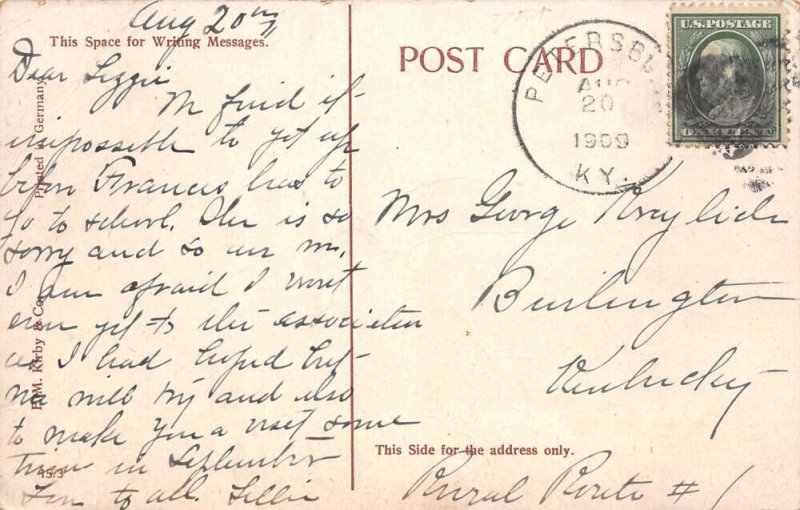 Aug 20th
This Space for Writing Messages.
Dear Lizzie
We find it
impossible to get up
before Frances has to
go to school. She is so
sorry and so am I.
I am afraid I wont
even get to the association
as I had hoped but
we will try and also
to make you a visit some
time in September
Love to all. Lillie
Printed in Germany
H.M. Kirby & Co.
15/3
POST CARD
PETERSBU
AUG
20
1909
KY.
U.S. POSTAGE
ONE CENT
Mrs George Kreylich
Burlington
Kentucky
This Side for the address only.
Rural Route # 1